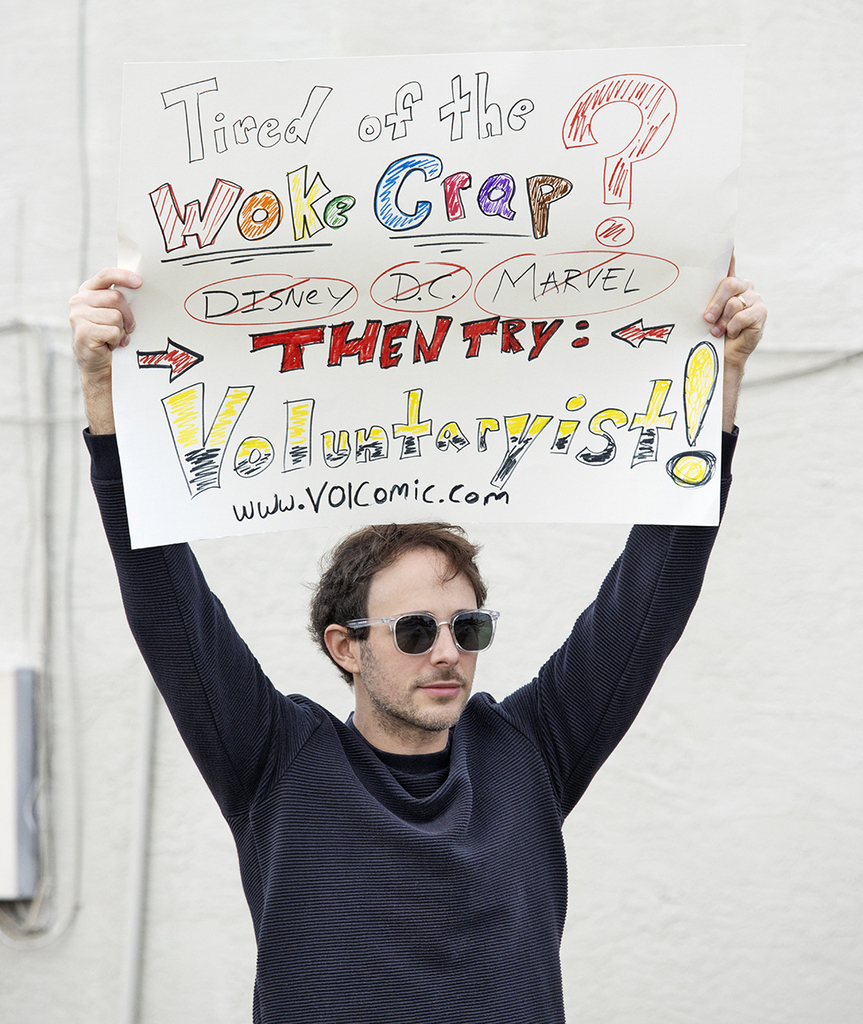 Tired of the
Woke Crap?
DISNEY D.C. MARVEL
THEN TRY:
Voluntaryist!
www.VOlComic.com